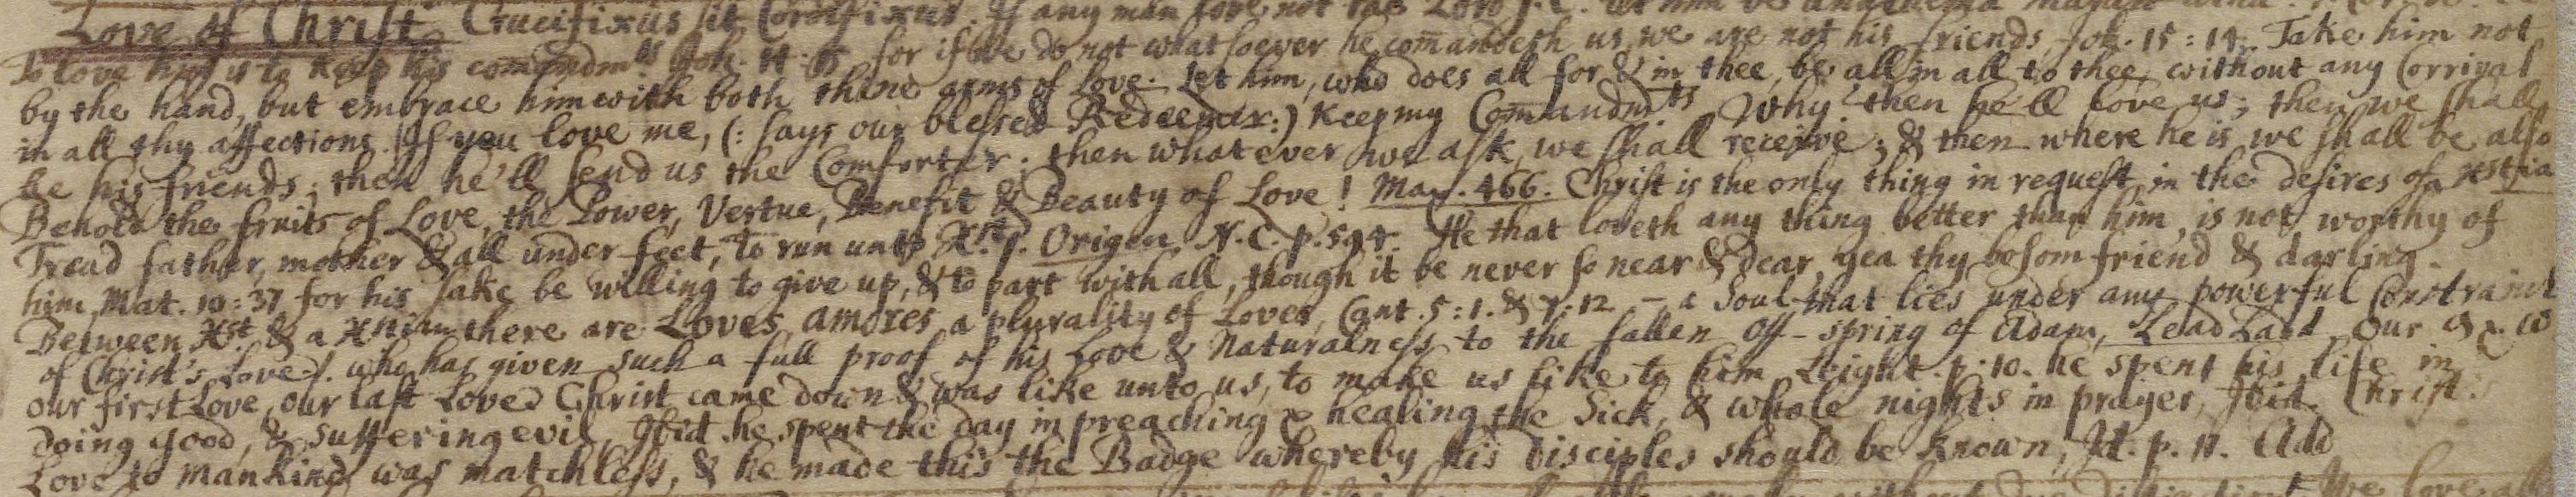 Love of Christ Crucifixus sit Cordifixus. If any man love not the Lord J. C. let him be anathema
To love him is to keep his comandmts Joh. 14: for if we do not whatsoever he comandeth us, we are not his friends, Joh. 15:14. Take him not
by the hand, but embrace him with both thine arms of Love. Let him, who does all for & in thee, be all in all to thee, without any Corrival
in all thy affections. If you love me, (: says our blessed Redeemer:) Keep my Comandmts Why? then he'll love us; then we shall
be his friends; then he'll send us the Comforter: then whatever we ask, we shall receive; & then where he is we shall be also
Behold the fruits of Love, the Power, Vertue, Benefit & Beauty of Love! Man. 466. Christ is the only thing in request in the desires of a xstian
Tread father, mother & all under feet, to run unto Xst. Origen. N. C. p. 594. He that loveth any thing better than him, is not worthy of
him, Mat. 10:37 for his sake be willing to give up, & to part with all, though it be never so near & dear, yea thy bosom friend & darling.
Between Xst & a Xstian there are Loves, amores, a plurality of Loves, Cant. 5:1. & 7:12 - a Soul that lies under any powerful Constraint
of Christ's Love. who has given such a full proof of his Love & Naturalness to the fallen Off-spring of Adam, Lead Lad. Our
our first Love, our last Loved Christ came down & was like unto us, to make us like to him Leight. p. 10. he spent his life in
doing good, & suffering evil, Ibid. he spent the day in preaching & healing the Sick, & whole nights in prayer, Ibid. Christ's
Love to Mankind was matchless, & he made this the Badge whereby his Disciples should be known, Id. p. 11. Add
We love